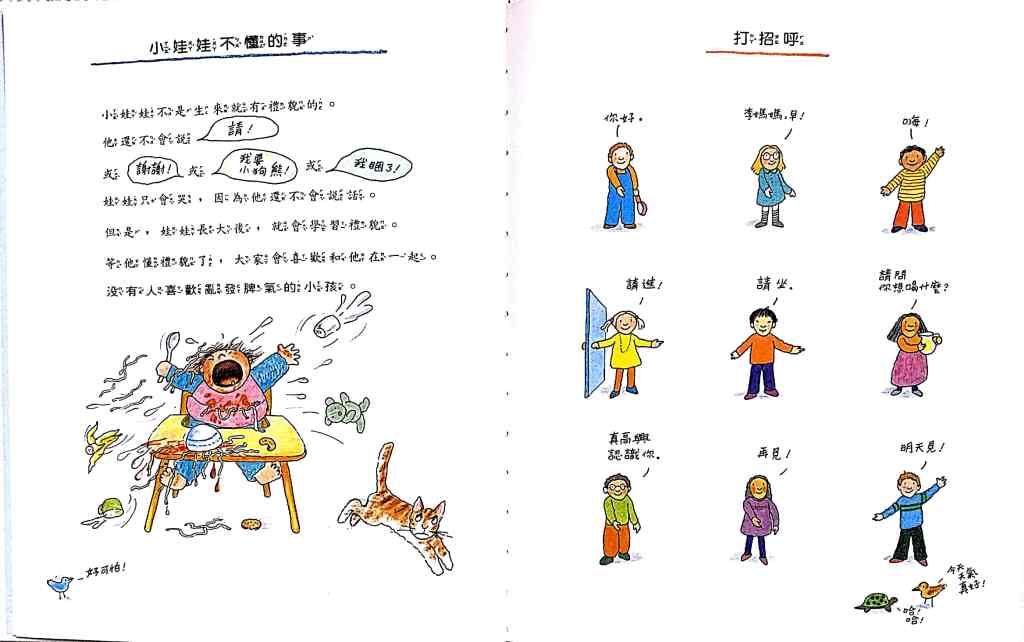 小娃娃不懂的事
小娃娃不是生來就有禮貌的。
他還不會說 請！
或 謝謝！ 或 我要小狗熊！ 或 我睏了！
娃娃只會哭，因為他還不會說話。
但是，娃娃長大後，就會學習禮貌。
等他懂禮貌了，大家會喜歡和他在一起。
沒有人喜歡亂發脾氣的小孩。
好可怕！
打招呼
你好。
李媽媽，早！
嗨！
請進！
請坐。
請問
你想喝什麼？
真高興
認識你。
再見！
明天見！
今天
天氣
真好！
哈！
哈！